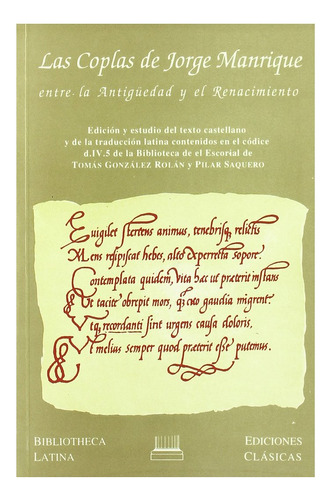 Las Coplas de Jorge Manrique
entre la Antigüedad y el Renacimiento
Edición y estudio del texto castellano
y de la traducción latina contenidos en el códice
d.IV.5 de la Biblioteca de el Escorial de
TOMÁS GONZÁLEZ ROLÁN Y PILAR SAQUERO
Euigilet stertens animus, tenebrisq; relictis
Mens resipiscat hebes, alto experrecta sopore.
Contemplata quidem, vita hac ut præterit instans
Et tacite obrepit mors, q; cito gaudia migrent.
Utq; recordanti sint urgens causa doloris,
Et melius semper quod præterit esse putemus.
BIBLIOTHECA
LATINA
EDICIONES
CLÁSICAS